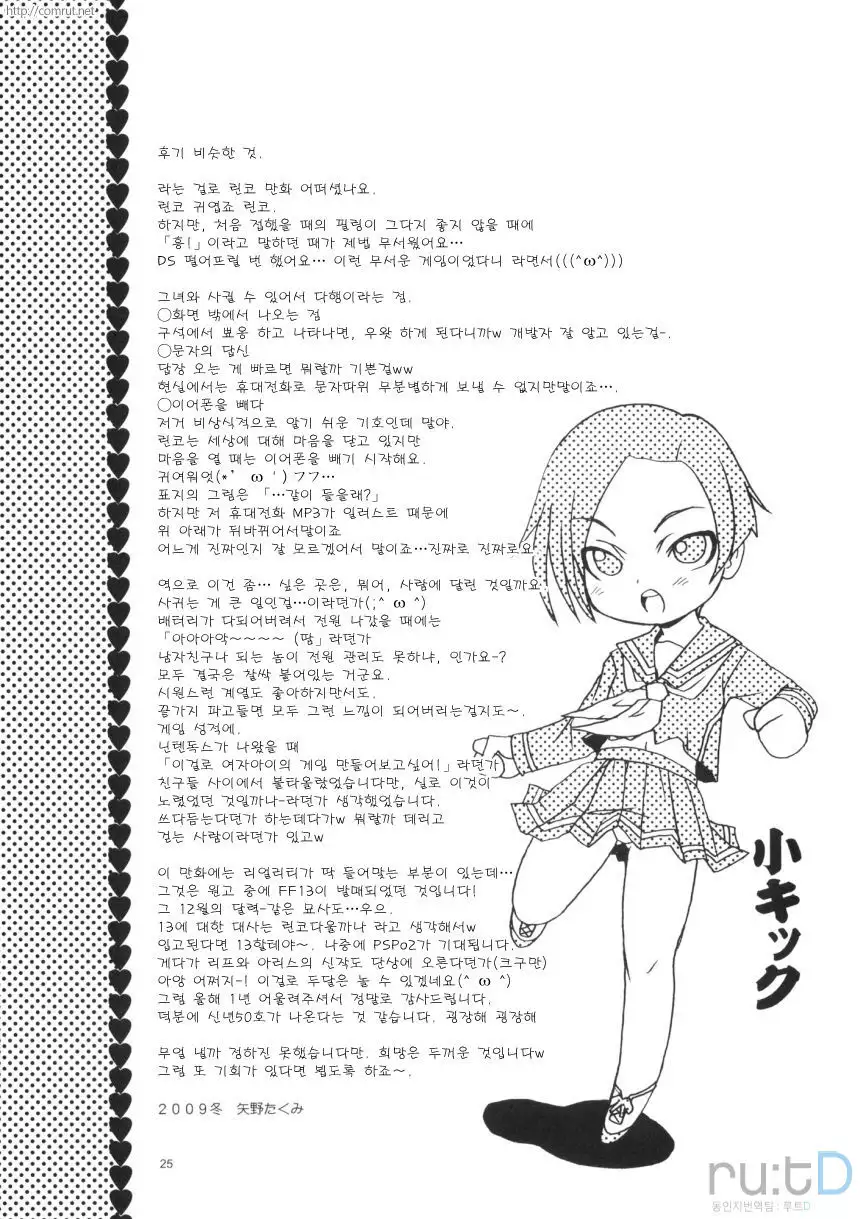 http://comrut.net
후기 비슷한 것.
라는 걸로 린코 만화 어떠셨나요.
린코 귀엽죠 린코.
하지만, 처음 접했을 때의 필링이 그다지 좋지 않을 때에
「흥!」이라고 말하던 때가 제법 무서웠어요…
DS 떨어뜨릴 번 했어요… 이런 무서운 게임이었다니 라면서(((^ω^)))
그녀와 사귈 수 있어서 다행이라는 점.
○화면 밖에서 나오는 점
구석에서 뾰옹 하고 나타나면, 우왓 하게 된다니까w 개발자 잘 알고 있는걸-.
○문자의 답신
답장 오는 게 빠르면 뭐랄까 기쁜걸ww
현실에서는 휴대전화로 문자따위 무분별하게 보낼 수 없지만말이죠….
○이어폰을 빼다
저거 비상식적으로 알기 쉬운 기호인데 말야.
린코는 세상에 대해 마음을 닫고 있지만
마음을 열 때는 이어폰을 빼기 시작해요.
귀여워엇(*’ ω ‘)フフ…
표지의 그림은 「…같이 들을래?」
하지만 저 휴대전화 MP3가 일러스트 때문에
위 아래가 뒤바뀌어서말이죠
어느게 진짜인지 잘 모르겠어서 말이죠…진짜로 진짜로요
역으로 이건 좀… 싶은 곳은, 뭐어, 사람에 달린 것일까요
사귀는 게 큰 일인걸…이라던가(;^ ω ^)
배터리가 다되어버려서 전원 나갔을 때에는
「아아아악~~~~ (땅」라던가
남자친구나 되는 놈이 전원 관리도 못하냐, 인가요-?
모두 결국은 찰싹 붙어있는 거군요.
시원스런 계열도 좋아하지만서도.
끝가지 파고들면 모두 그런 느낌이 되어버리는걸지도~.
게임 성격에.
닌텐독스가 나왔을 때
「이걸로 여자아이의 게임 만들어보고싶어!」라던가
친구들 사이에서 불타올랐었습니다만, 실로 이것이
노렸었던 것일까나-라던가 생각했었습니다.
쓰다듬는다던가 하는데다가w 뭐랄까 데리고
걷는 사람이라던가 있고w
이 만화에는 리얼리티가 딱 들어맞는 부분이 있는데…
그것은 원고 중에 FF13이 발매되었던 것입니다!
그 12월의 달력-같은 묘사도…우으.
13에 대한 대사는 린코다울까나 라고 생각해서w
입고된다면 13할테야~. 나중에 PSPo2가 기대됩니다.
게다가 리프와 아리스의 신작도 단상에 오른다던가(크구만)
아앙 어쩌지-! 이걸로 두달은 놀 수 있겠네요(^ ω ^)
그럼 올해 1년 어울려주셔서 정말로 감사드립니다.
덕분에 신년50호가 나온다는 것 같습니다. 굉장해 굉장해
무얼 낼까 정하진 못했습니다만. 희망은 두꺼운 것입니다w
그럼 또 기회가 있다면 뵙도록 하죠~.
2009冬 矢野たくみ
小キック
25
ru:tD
동인지번역팀 : 루트D